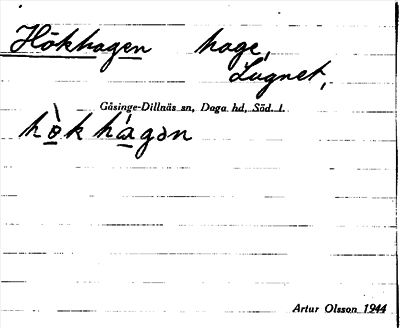 Hökhagen hage,
Lugnet,
Gåsinge-Dillnäs sn, Daga hd, Söd. l.
hò̲k há̲gən
Artur Olsson 1944